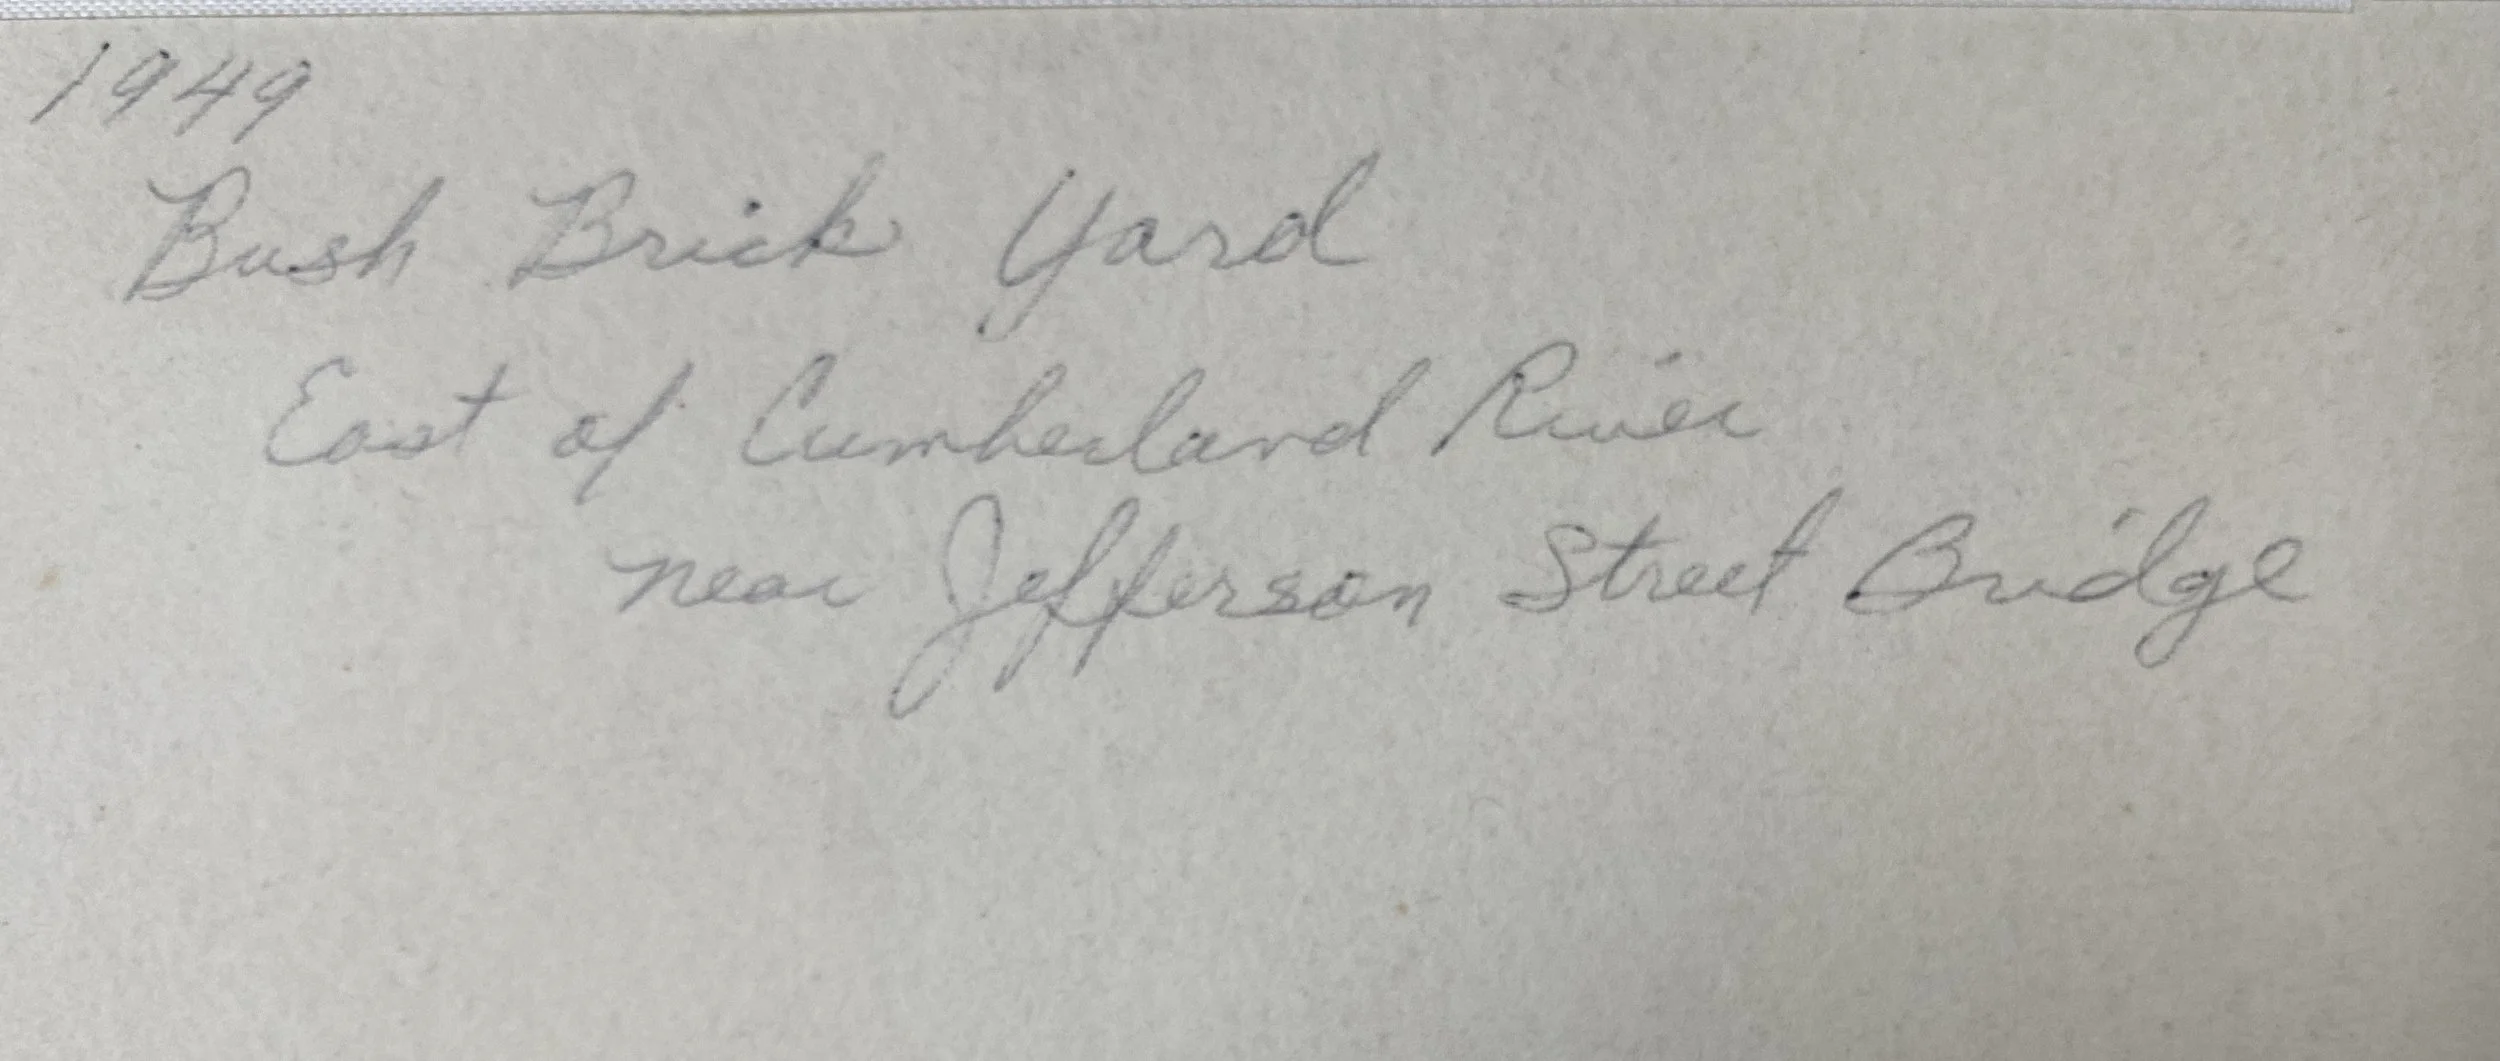 1949
Bush Brick Yard
East of Cumberland River
near Jefferson Street Bridge